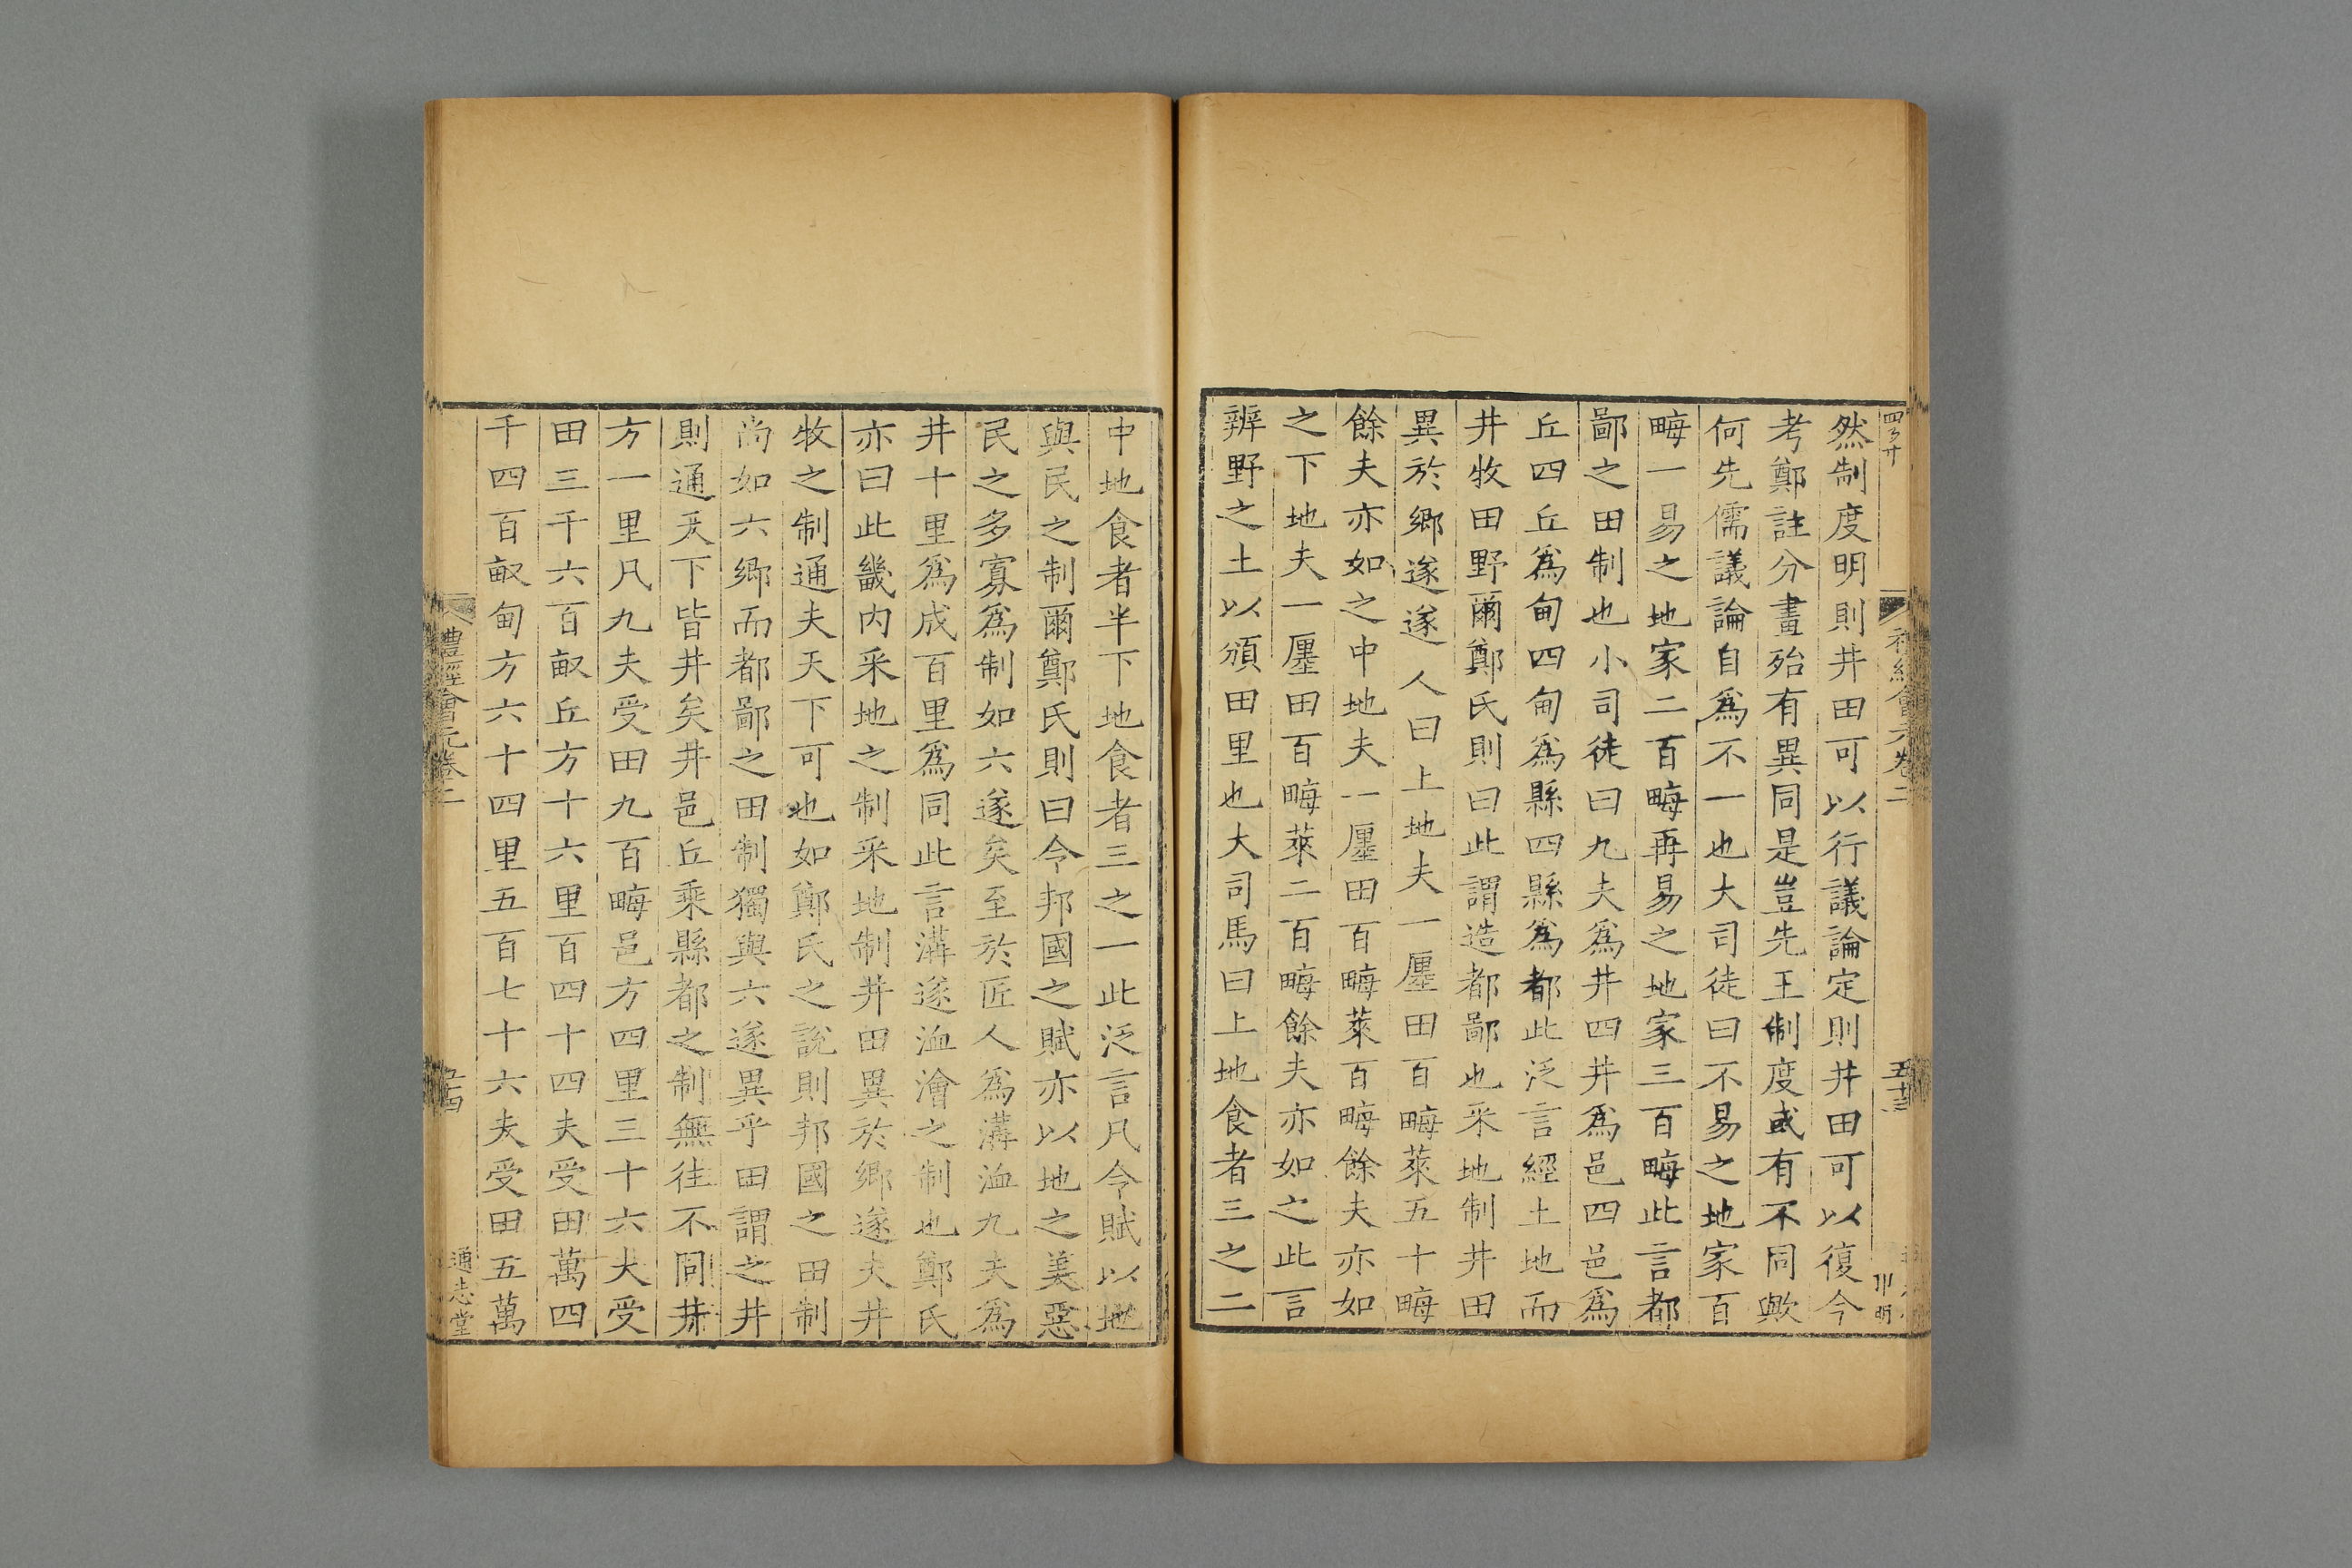 然制度明則井田可以行議論定則井田可以復今
考鄭註分畫殆有異同是豈先王制度或有不同歟
何先儒議論自爲不一也大司徒曰不易之地家百
畮一易之地家二百畮再易之地家三百畮此言都
鄙之田制也小司徒曰九夫爲井四井爲邑四邑爲
丘四丘爲甸四甸爲縣四縣爲都此泛言經土地而
井牧田野爾鄭氏則曰此謂造都鄙也采地制井田
異於鄉遂遂人曰上地夫一廛田百畮萊五十畮
餘夫亦如之中地夫一廛田百畮萊百畮餘夫亦如
之下地夫一廛田百畮萊二百畮餘夫亦如之此言
辨野之土以頒田里也大司馬曰上地食者三之二
中地食者半下地食者三之一此泛言凡令賦以地
與民之制爾鄭氏則曰令邦國之賦亦以地之美惡
民之多寡爲制如六遂矣至於匠人爲溝洫九夫爲
井十里爲成百里爲同此言溝遂洫澮之制也鄭氏
亦曰此畿內采地之制采地制井田異於鄉遂夫井
牧之制通夫天下可也如鄭氏之說則邦國之田制
尚如六鄉而都鄙之田制獨與六遂異乎田謂之井
則通天下皆井矣井邑丘乘縣都之制無往不同井
方一里凡九夫受田九百畮邑方四里三十六夫受
田三千六百畝丘方十六里百四十四夫受田萬四
千四百畝甸方六十四里五百七十六夫受田五萬
禮經會元卷二
五十四
通志堂